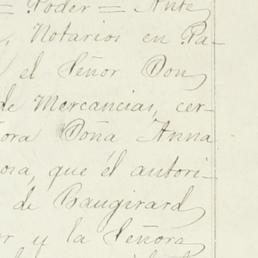 = Poder = Ante
, Notarios en Pa-
el Señor Don
de Mercancias, cer-
ora Doña Anna
osa, que él autori-
de Baugirard
r y la Señora